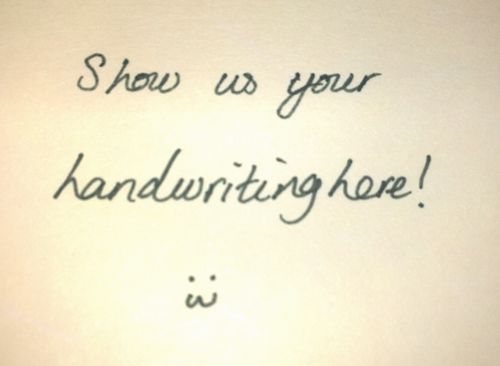 Show us your
handwriting here!